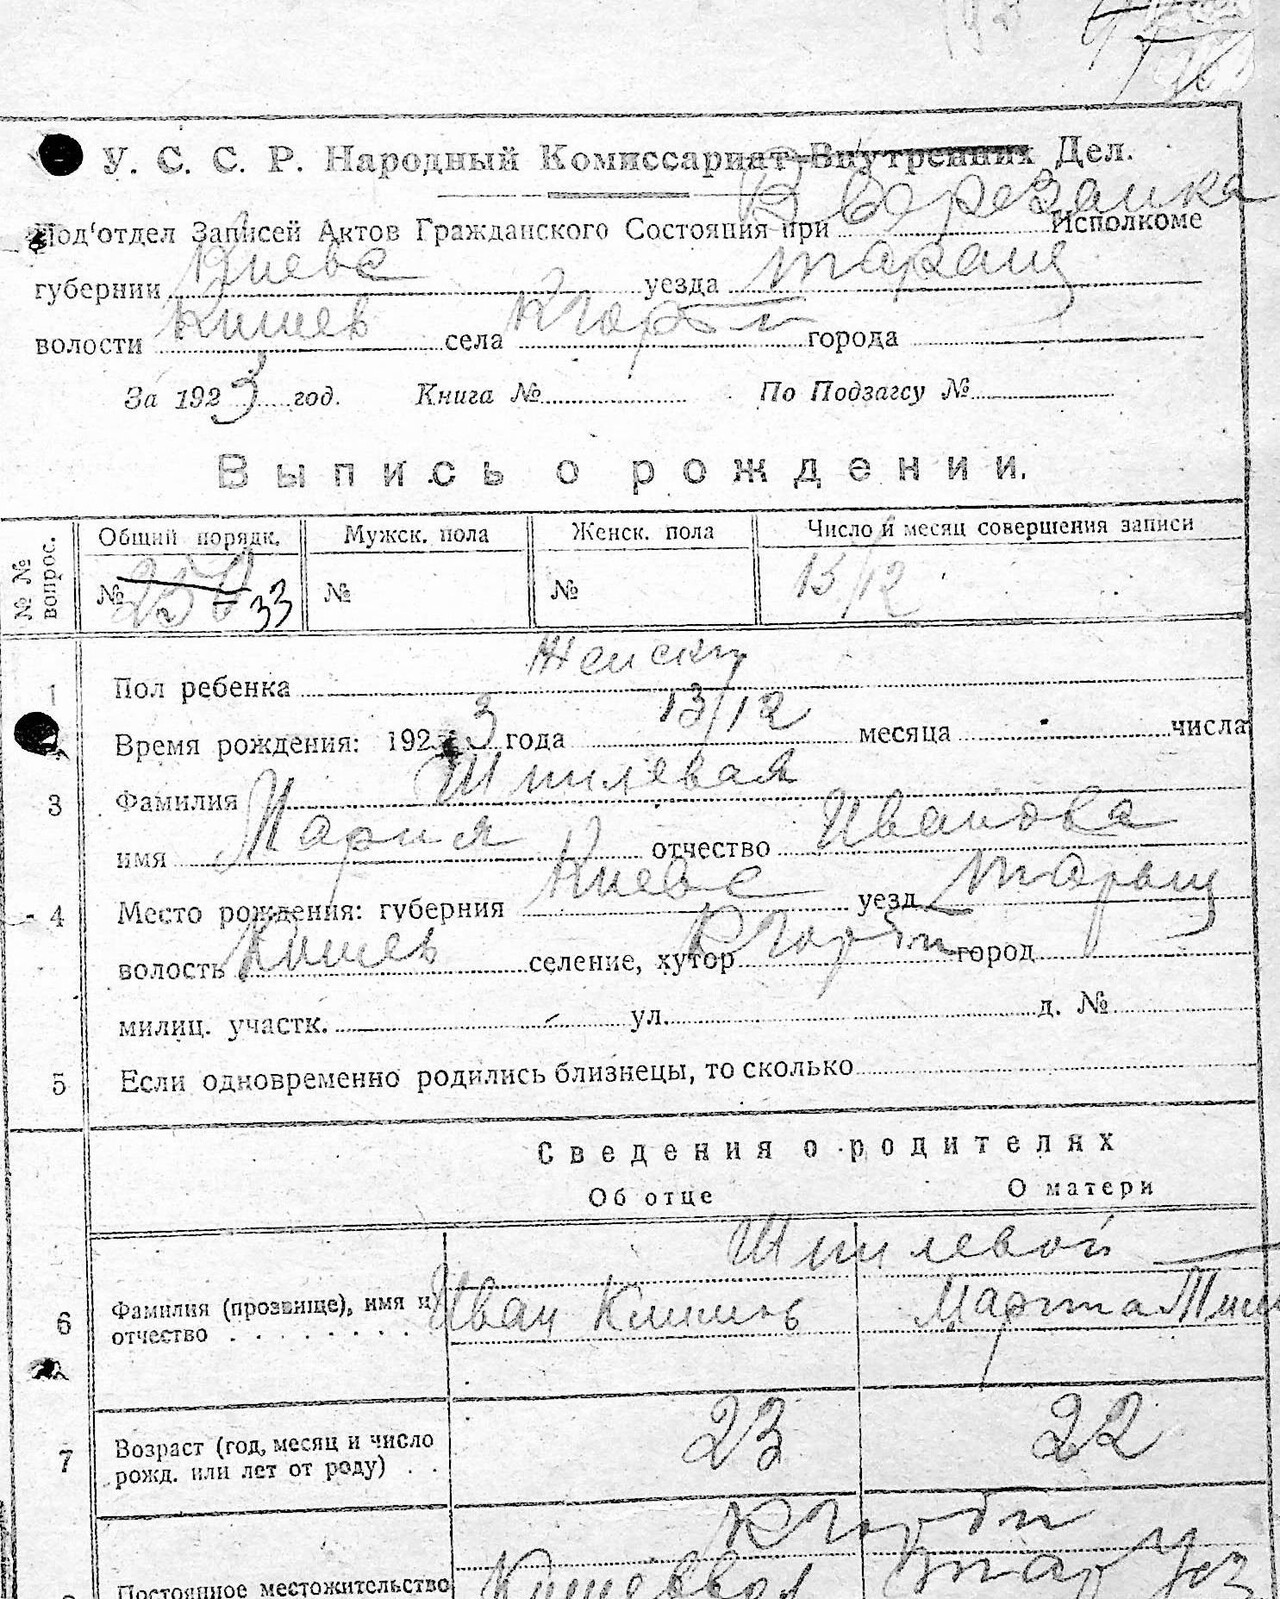 У. С. С. Р. Народный Комиссариат Внутренних Дел.
Под'отдел Записей Актов Гражданского Состояния при В Березанка Исполкоме
губернии Киевс уезда Таращ
волости Кишев села города
За 1923 год. Книга № По Подзагсу №
Выпись о рождении.
№ № вопрос. Общий порядк. Мужск. пола Женск. пола Число и месяц совершения записи
№ 33 № № 15/12
1 Пол ребенка Женски
Время рождения: 1923 года 13/12 месяца числа
3 Фамилия Шпилевая
имя Мария отчество Иванова
4 Место рождения: губерния Киевс уезд Таращ
волость Кишев селение, хутор город
милиц. участк. ул. д. №
5 Если одновременно родились близнецы, то сколько
Сведения о родителях
Об отце О матери
Шпилевой
6 Фамилия (прозвище), имя и отчество Иван Климов Марта
7 Возраст (год, месяц и число рожд. или лет от роду) 23 22
Постоянное местожительство